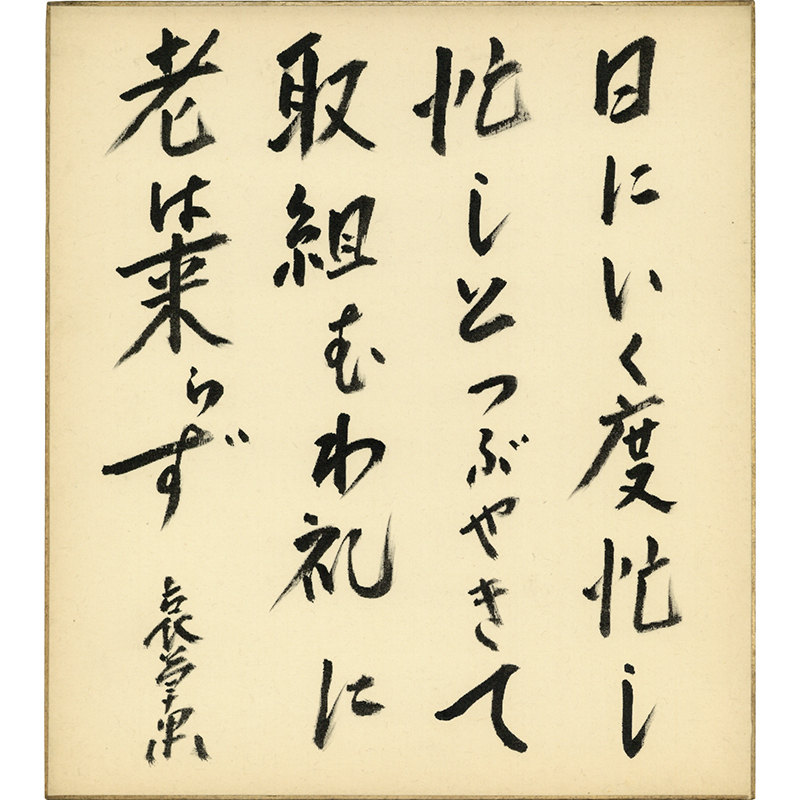 日にいく度忙し
忙しとつぶやきて
取組むわれに
老は来らず
哀草果